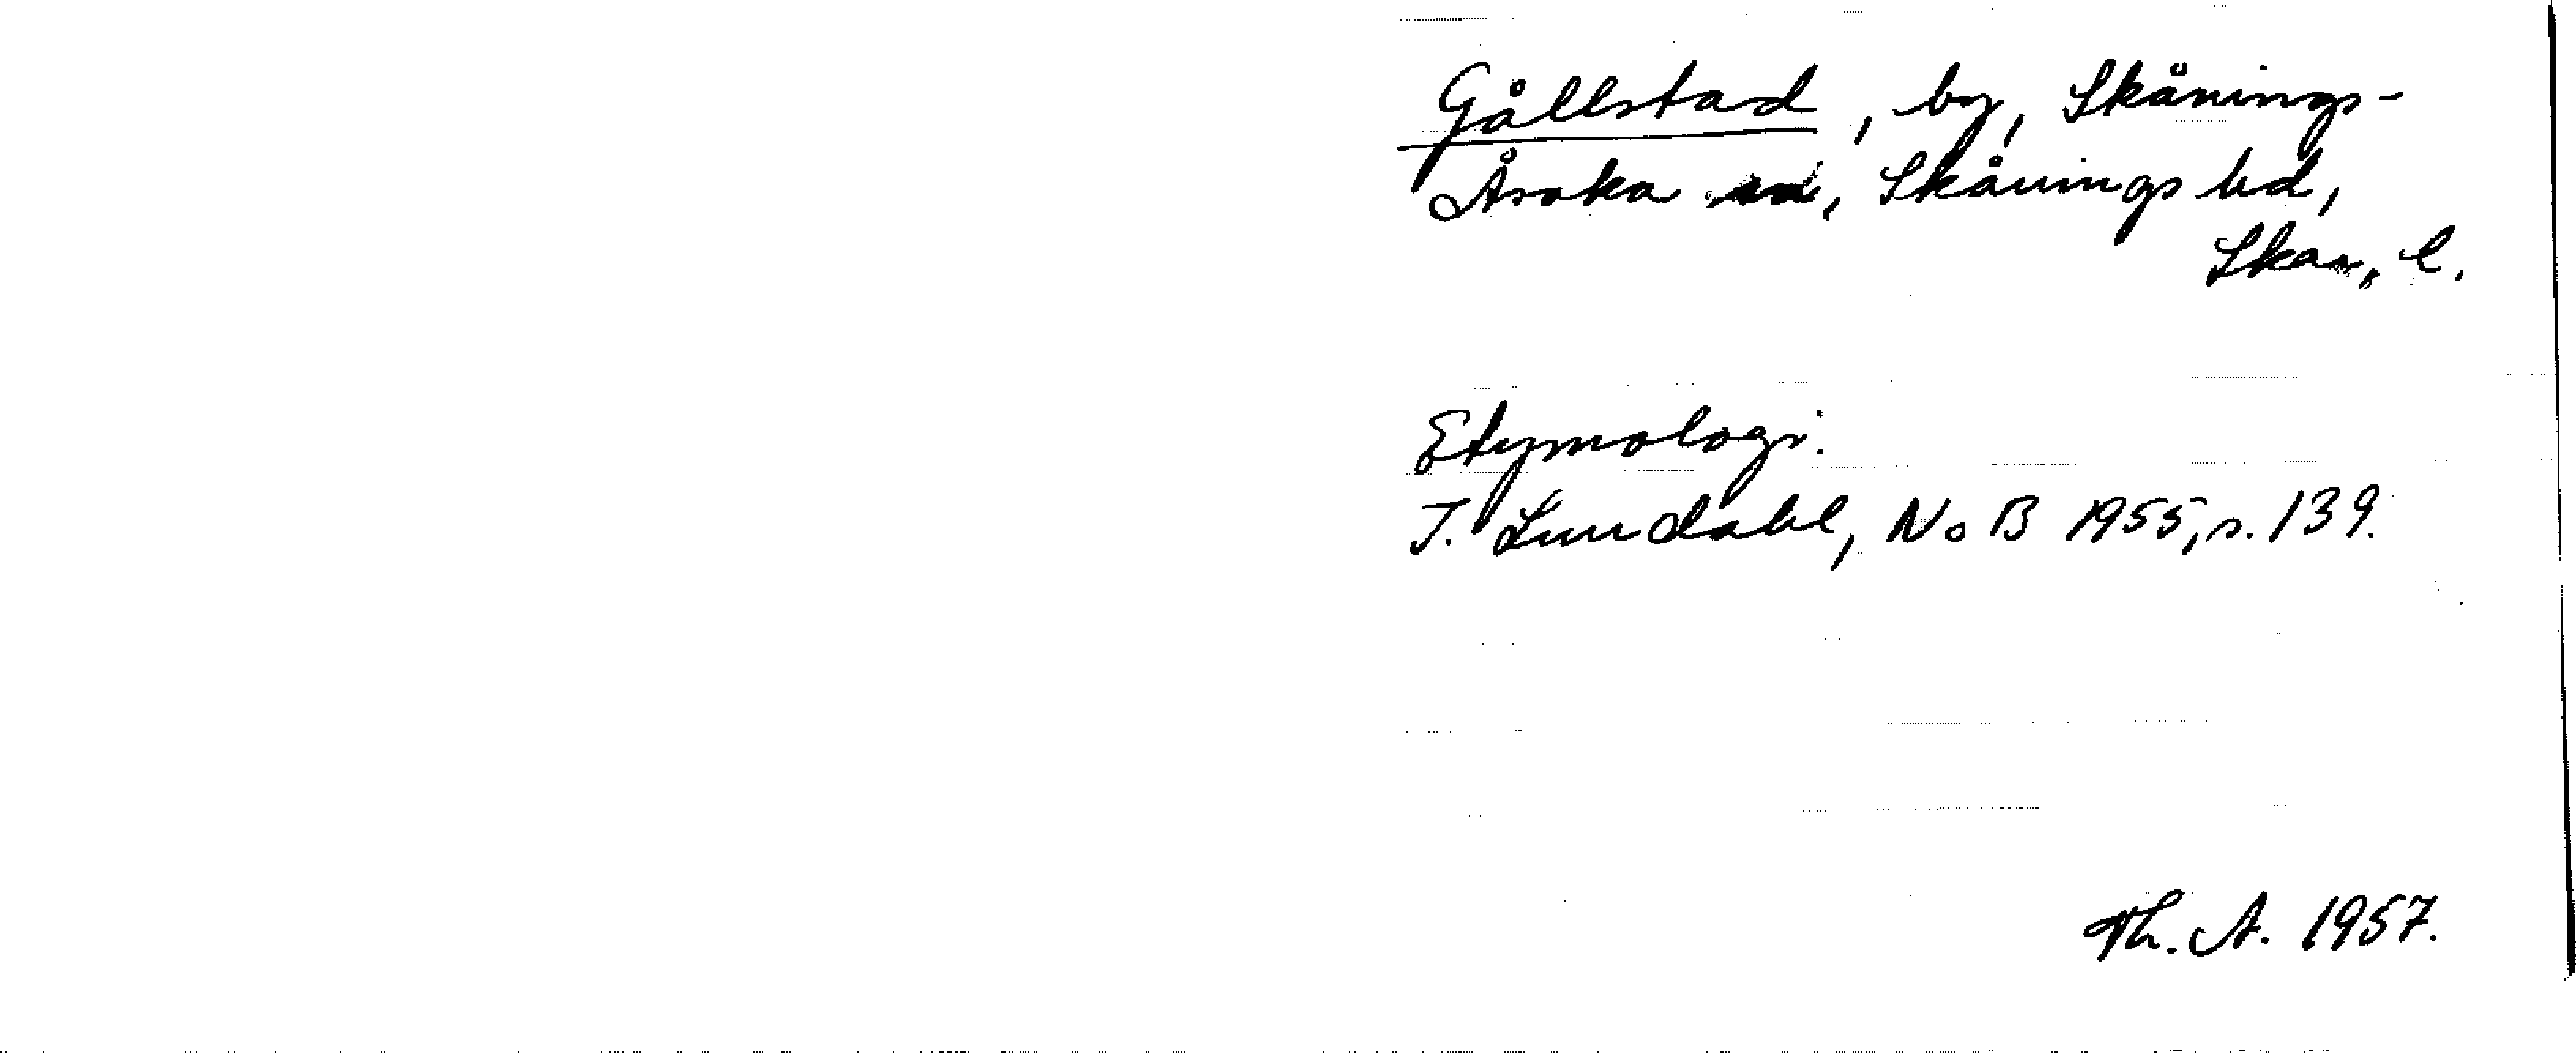 Gållstad, by, Skånings-
Åsaka sn, Skånings hd,
Skar. l.
Etymologi.
I. Lundahl, NoB 1955, s. 139.
Th. A. 1957.